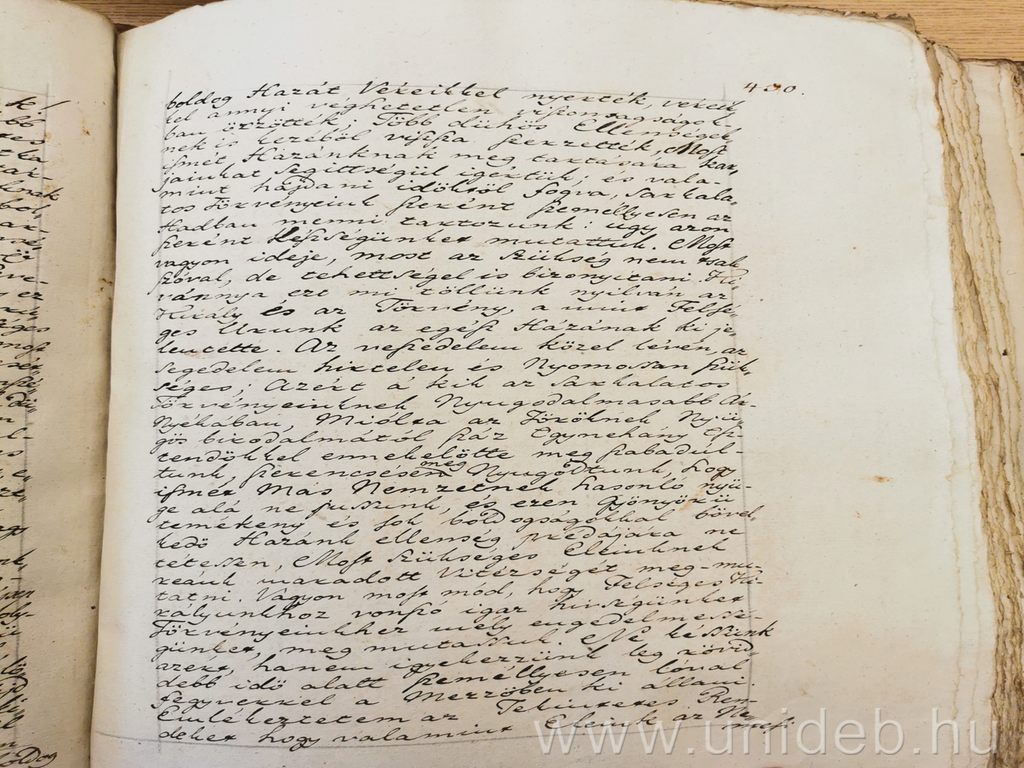 430.
boldog Hazát Véreikkel nyerték, verek
kel annyi véghetetlen viszontagságok
ban őrzötték; Több dühös Ellenségek
nek is kezéből vissza szerzették, Most
ismét Hazánknak meg tartására kar,
jainkat segittségül igértük; és vala-
mint hajdani időktől fogva, Sarkala,
tos Törvényeink szerént személlyesen az
Hadban menni tartozunk: ugy azon
szerént készségünket mutattuk. Most
vagyon ideje, most az szükség nem csak
szóval, de tehettségel is bizonyitani. Ki
vánnya ezt mi tőllünk nyilván az
Király és az Törvény, a mint Felsé
ges Urunk az egész Házának ki je
lentette. Az veszedelem közel lévén, az
segedelem hirtelen és Nyomossan szük,
séges; Azért á kik az sarkalatos
Törvényeinknek Nyugodalmasabb Ár-
nyékában, Miólta az Töröknek Nyü
gös birodalmától száz Egynehány Esz
tendőkkel ennekelőtte meg szabadul-
tunk, szerencséssen Nyugodtunk, hogy
ismét Más Nemzetnek hasonló nyü
ge alá ne jussunk, és ezen gyönyörü
temékeny és sok bóldogságokkal bővel
kedő Hazánk ellenség prédájára ne
tétessen, Most szükséges Eleinknek
reánk maradott Vitézségét meg-mu
tatni. Vagyon most mód, hogy Felséges Ki
rályunkhoz vonszó igaz hivségünket
Törvényeinkhez mély engedelmessé-
günket, meg mutassuk. Ne késsünk
azért, hanem igyekezzünk leg rövid
debb idő alatt személlyesen lóval
fegyverrel a Mezzőben ki állani
Emlékeztetem az Tekintetes Ren-
deket hogy valamint Eleink az
www.unideb.hu